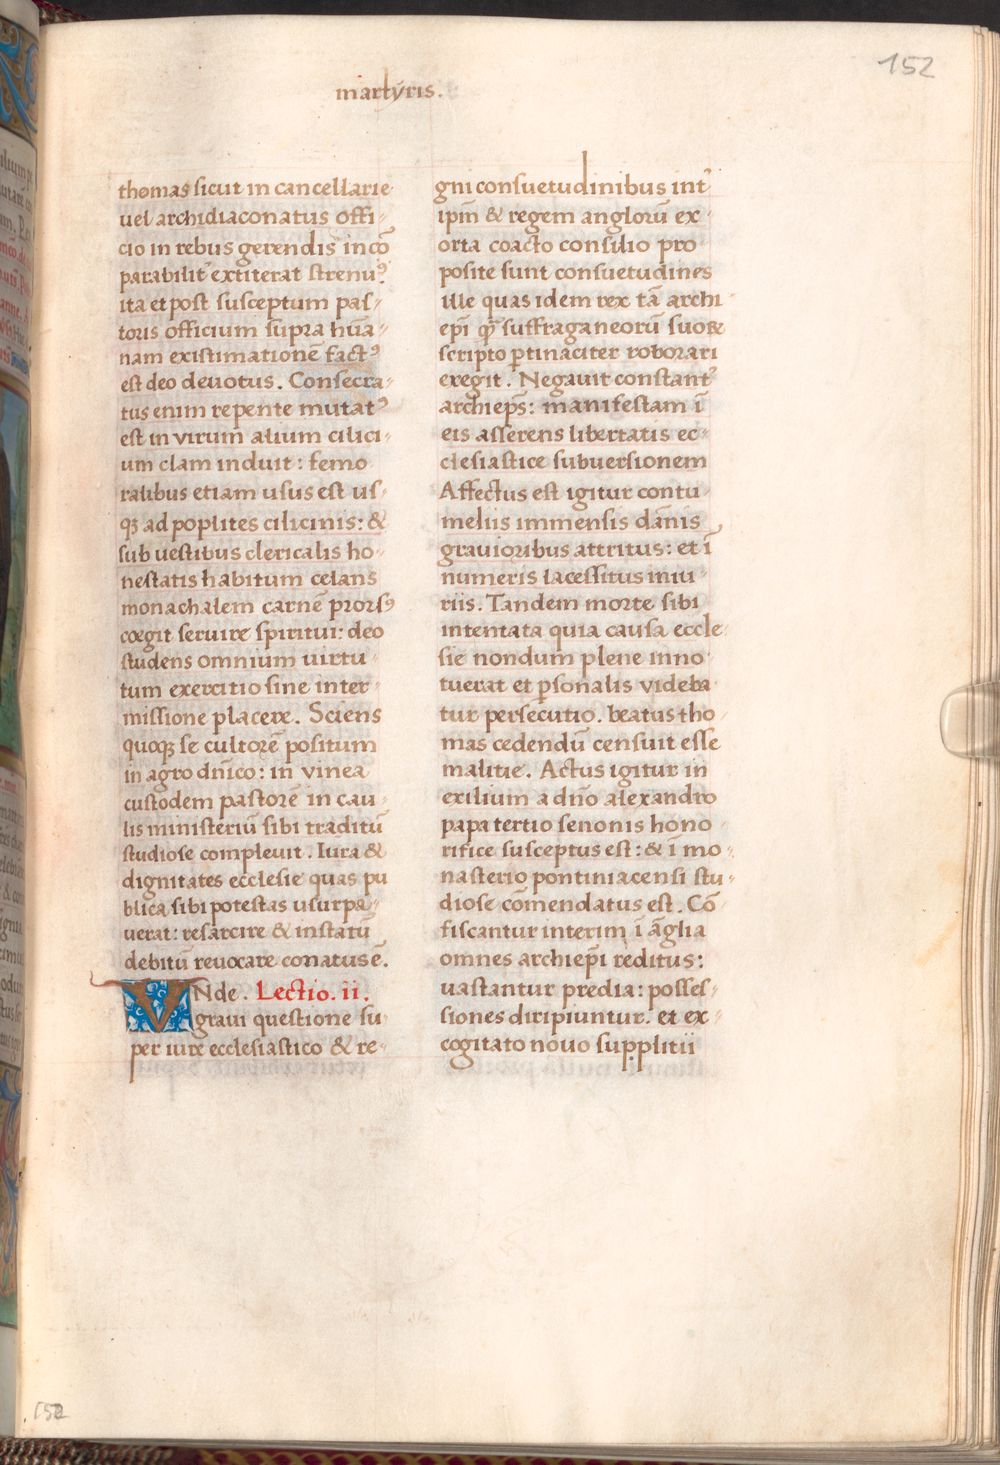 152
martÿris.
thomas sicut in cancellarie
uel archidiaconatus offi-
cio in rebus gerendis incō
parabilit᷑ extiterat strenu᷒
ita et post susceptum pas-
toris officium supra hūa-
nam existimationē fact᷒
est deo deuotus. Consecra-
tus enim repente mutat᷒
est in virum alium cilici-
um clam induit: femo
ralibus etiam usus est us-
qꝫ ad poplites cilicinis: &
sub uestibus clericalis ho-
nestatis habitum celans
monachalem carnē prors᷒
coegit seruire spiritui: deo
studens omnium uirtu-
tum exercitio sine inter-
missione placere. Sciens
quoqꝫ se cultorē positum
in agro dn̄ico: in vinea
custodem pastorē in cau-
lis ministeriū sibi traditū
studiose compleuit. Iura &
dignitates ecclesie quas pu
blica sibi potestas usurpa-
uerat: resarcire & in statū
debitū reuocare conatus ē.
VNde. Lectio. ii.
graui questione su-
per iure ecclesiastico & re-
gni consuetudinibus int᷑
ip̄m & regem anglorū ex-
orta coacto consilio pro-
posite sunt consuetudines
ille quas idem rex tā archi-
ep̄i qꝫ̄ suffraganeorū suoꝝ
scripto ꝑtinaciter roborari
exegit. Negauit constant᷑
archiep̄s: manifestam ī
eis asserens libertatis ec-
clesiastice subuersionem
Affectus est igitur contu-
meliis immensis dānis
grauioribus attritus: et ī
numeris lacessitus iniu-
riis. Tandem morte sibi
intentata quia causa eccle-
sie nondum plene inno-
tuerat et ꝑsonalis videba
tur persecutio. beatus tho
mas cedendū censuit esse
malitie. Actus igitur in
exilium a dn̄o alexandro
papa tertio senonis hono
rifice susceptus est: & ī mo-
nasterio pontiniacensi stu-
diose cōmendatus est. Cō
fiscantur interim ī āglia
omnes archiep̄i reditus:
uastantur predia: posses-
siones diripiuntur. et ex-
cogitato nouo supplitii
152